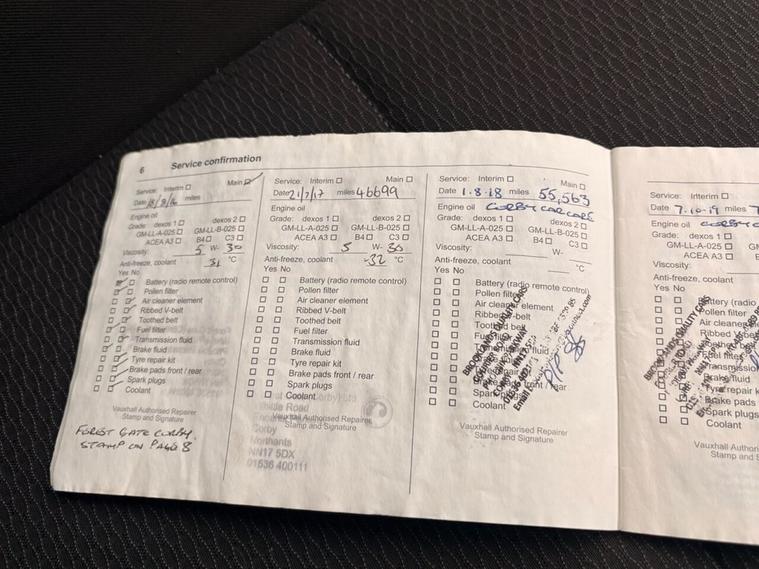 6 Service confirmation
Service: Interim ☐ Main ☑
Date miles
Engine oil
Grade: dexos 1 ☐ dexos 2 ☐
GM-LL-A-025 ☐ GM-LL-B-025 ☐
ACEA A3 ☐ B4 ☐ C3 ☐
Viscosity: 5 W- 30
Anti-freeze, coolant °C
Yes No
Battery (radio remote control)
Pollen filter
Air cleaner element
Ribbed V-belt
Toothed belt
Fuel filter
Transmission fluid
Brake fluid
Tyre repair kit
Brake pads front / rear
Spark plugs
Coolant
Vauxhall Authorised Repairer
Stamp and Signature
FOREST GATE CORBY.
STAMP ON PAGE 8
Service: Interim ☐ Main ☐
Date 21/7/17 miles 46699
Engine oil
Grade: dexos 1 ☐ dexos 2 ☐
GM-LL-A-025 ☐ GM-LL-B-025 ☐
ACEA A3 ☐ B4 ☐ C3 ☐
Viscosity: 5 W- 30
Anti-freeze, coolant -32 °C
Yes No
Battery (radio remote control)
Pollen filter
Air cleaner element
Ribbed V-belt
Toothed belt
Fuel filter
Transmission fluid
Brake fluid
Tyre repair kit
Brake pads front / rear
Spark plugs
Coolant
Road
Vauxhall Authorised Repairer
Stamp and Signature
Corby
Northants
NN17 5DX
01536 400111
Service: Interim ☐ Main ☐
Date 1.8.18 miles 55,563
Engine oil
Grade: dexos 1 ☐ dexos 2 ☐
GM-LL-A-025 ☐ GM-LL-B-025 ☐
ACEA A3 ☐ B4 ☐ C3 ☐
Viscosity: W-
Anti-freeze, coolant °C
Yes No
Battery (radio remote control)
Pollen filter
element
Ribbed
Toothed belt
fluid
front / rear
Spark
Coolant
BROOKLANDS QUALITY CARS
Vauxhall Authorised Repairer
Stamp and Signature
Service: Interim ☐
Date 7.10.19 miles 7
Engine oil
Grade: dexos 1 ☐
GM-LL-A-025 ☐
ACEA A3 ☐
Viscosity:
Anti-freeze, coolant
Yes No
Pollen filter
Air cleaner
Ribbed
Brake fluid
Brake pads
Spark plugs
Coolant
BROOKLANDS QUALITY CARS
Vauxhall Author
Stamp and S